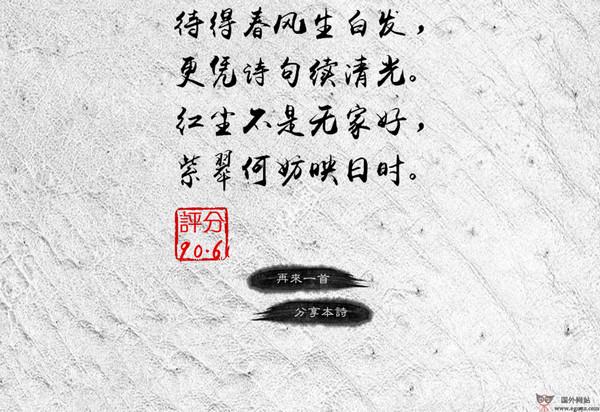 待得春风生白发，
更凭诗句续清光。
红尘不是无家好，
紫翠何妨映日时。
評分
90.6
再來一首
分享本詩
国外网站
www.egouz.com